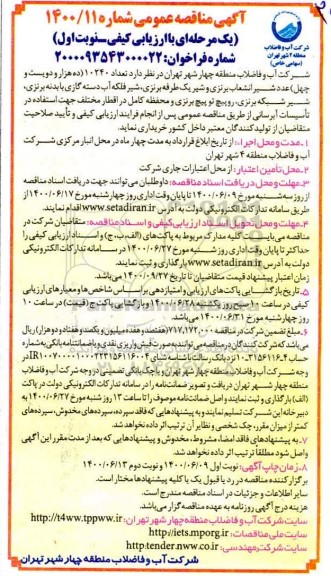 آگهی مناقصه عمومی شماره ۱۴۰۰/۱۱
(یک مرحله‌ای با ارزیابی کیفی ـ نوبت اول)
شماره فراخوان: ۲۰۰۰۰۹۳۵۴۳۰۰۰۰۲۲
شرکت آب و فاضلاب
منطقه ۴ شهر تهران
(سهامی خاص)
شرکت آب و فاضلاب منطقه چهار شهر تهران در نظر دارد تعداد ۱۰۲۴۰ (ده هزار و دویست و
چهل) عدد شیر انشعاب برنزی و شیر یک طرفه برنزی، شیر فلکه آب دسته گازی با بدنه برنزی،
شیر شبکه برنزی، رو پیچ تو پیچ برنزی و محفظه کامل در اقطار مختلف جهت استفاده در
تأسیسات آبرسانی از طریق مناقصه عمومی پس از انجام فرایند ارزیابی کیفی و تأیید صلاحیت
متقاضیان از تولیدکنندگان معتبر داخل کشور خریداری نماید.
۱ـ مدت و محل اجرا: از تاریخ ابلاغ قرارداد به مدت چهار ماه در محل انبار مرکزی شرکت
آب و فاضلاب منطقه ۴ شهر تهران
۲ـ محل تأمین اعتبار: از محل اعتبارات جاری شرکت
۳ـ مهلت و محل دریافت اسناد مناقصه: داوطلبان می‌توانند جهت دریافت اسناد مناقصه
از روز سه‌شنبه مورخ ۱۴۰۰/۰۶/۰۹ تا پایان وقت اداری روز چهارشنبه مورخ ۱۴۰۰/۰۶/۱۷ از
طریق سامانه تدارکات الکترونیکی دولت به آدرس www.setadiran.ir اقدام نمایند.
۴ـ مهلت و محل تحویل اسناد ارزیابی کیفی و اسناد مناقصه: متقاضیان شرکت در
مناقصه می‌بایست کلیه مدارک مربوط به پاکت‌های (الف، ب، ج) و اسناد ارزیابی کیفی را
حداکثر تا پایان وقت اداری روز شنبه مورخ ۱۴۰۰/۰۶/۲۷ در سامانه تدارکات الکترونیکی
دولت به آدرس www.setadiran.ir بارگذاری و ثبت نمایند.
زمان اعتبار پیشنهاد قیمت متقاضیان تا تاریخ ۱۴۰۰/۰۹/۲۷ می‌باشد.
۵ـ تاریخ بازگشایی پاکت‌های ارزیابی و امتیازدهی براساس شاخص‌ها و معیارهای ارزیابی
کیفی در ساعت ۱۰ صبح روز یکشنبه مورخ ۱۴۰۰/۰۶/۲۸ و بازگشایی پاکت ج (قیمت) در ساعت ۱۰
روز چهارشنبه مورخ ۱۴۰۰/۰۶/۳۱ می‌باشد.
۶ـ مبلغ تضمین شرکت در مناقصه ۷۱۷,۱۷۲,۰۰۰ (هفتصد و هفده میلیون و یکصد و هفتاد و دو هزار) ریال
می‌باشد که شرکت‌کنندگان در مناقصه می‌توانند به صورت فیش واریزی نقدی و یا ضمانتنامه بانکی به شماره
وجه شرکت آب و فاضلاب منطقه چهار شهر تهران و یا چک بانکی تضمینی در وجه شرکت آب و فاضلاب
منطقه چهار شهر تهران دریافت و تصویر ضمانتنامه را در سامانه تدارکات الکترونیکی دولت در پاکت
(الف) بارگذاری و ثبت نمایند و اصل ضمانتنامه موصوف را تا ساعت ۱۳ روز شنبه مورخ ۱۴۰۰/۰۶/۲۷ به
دبیرخانه این شرکت تسلیم نمایند و به پیشنهادهایی که فاقد سپرده، سپرده‌های مخدوش، سپرده‌های
کمتر از میزان مقرر، چک شخصی و نظایر آن ترتیب اثر داده نخواهد شد.
۷ـ به پیشنهادهای فاقد امضا، مشروط، مخدوش و پیشنهادهایی که بعد از مدت مقرر این آگهی
واصل شود مطلقاً ترتیب اثر داده نخواهد شد.
۸ـ زمان چاپ آگهی: نوبت اول ۱۴۰۰/۰۶/۰۹ و نوبت دوم ۱۴۰۰/۰۶/۱۳
برگزار کننده مناقصه در رد یا قبول یک یا کلیه پیشنهادها مختار است.
سایر اطلاعات و جزئیات در اسناد مناقصه مندرج است.
هزینه درج آگهی روزنامه به عهده مناقصه گزار می‌باشد.
سایت شرکت آب و فاضلاب منطقه چهار شهر تهران: http://t4ww.tppww.ir
سایت ملی مناقصات: http://iets.mporg.ir
سایت شرکت مهندسی: http:tender.nww.co.ir
شرکت آب و فاضلاب منطقه چهار شهر تهران